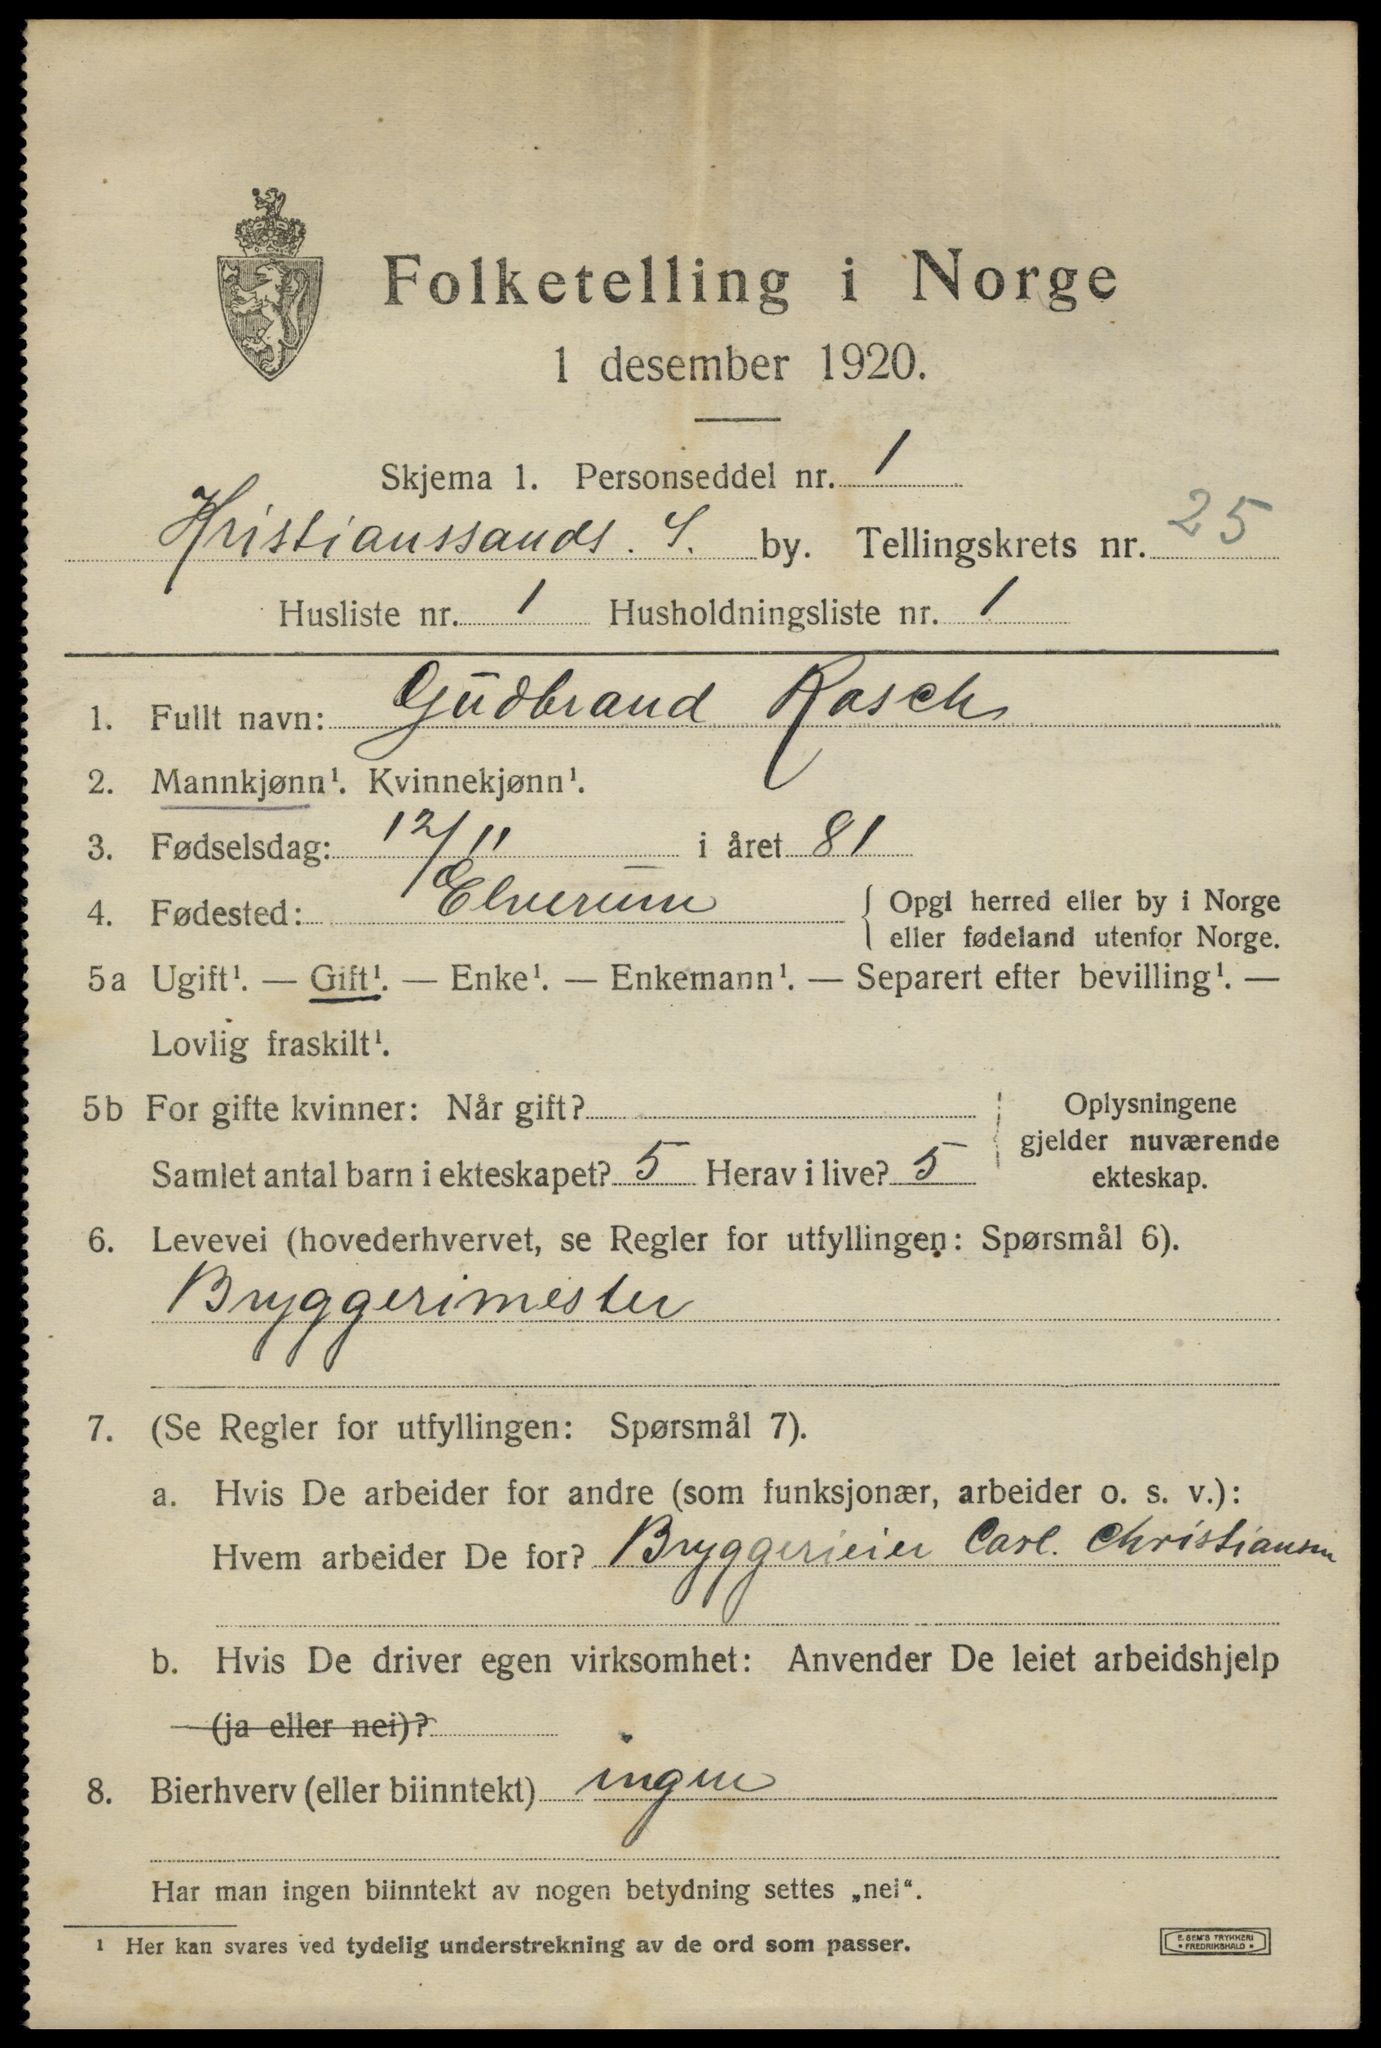 Folketelling i Norge
1 desember 1920.
Skjema 1. Personseddel nr. 1
Kristianssands. S. by. Tellingskrets nr. 25
Husliste nr. 1 Husholdningsliste nr. 1
1. Fullt navn: Gudbrand Rasch
2. Mannkjønn¹. Kvinnekjønn¹.
3. Fødselsdag: 12/11 i året 81
4. Fødested: Elverum { Opgi herred eller by i Norge
eller fødeland utenfor Norge.
5a Ugift¹. — Gift¹. — Enke¹. — Enkemann¹. — Separert efter bevilling¹. —
Lovlig fraskilt¹.
5b For gifte kvinner: Når gift? Oplysningene
gjelder nuværende
Samlet antal barn i ekteskapet? 5 Herav i live? 5 ekteskap.
6. Levevei (hovederhvervet, se Regler for utfyllingen: Spørsmål 6).
Bryggerimester
7. (Se Regler for utfyllingen: Spørsmål 7).
a. Hvis De arbeider for andre (som funksjonær, arbeider o. s. v.):
Hvem arbeider De for? Bryggerieier Carl. Christiansen
b. Hvis De driver egen virksomhet: Anvender De leiet arbeidshjelp
(ja eller nei)?
8. Bierhverv (eller biinntekt) ingen
Har man ingen biinntekt av nogen betydning settes „nei“.
¹ Her kan svares ved tydelig understrekning av de ord som passer.
E. SEM'S TRYKKERI
• FREDRIKSHALD •